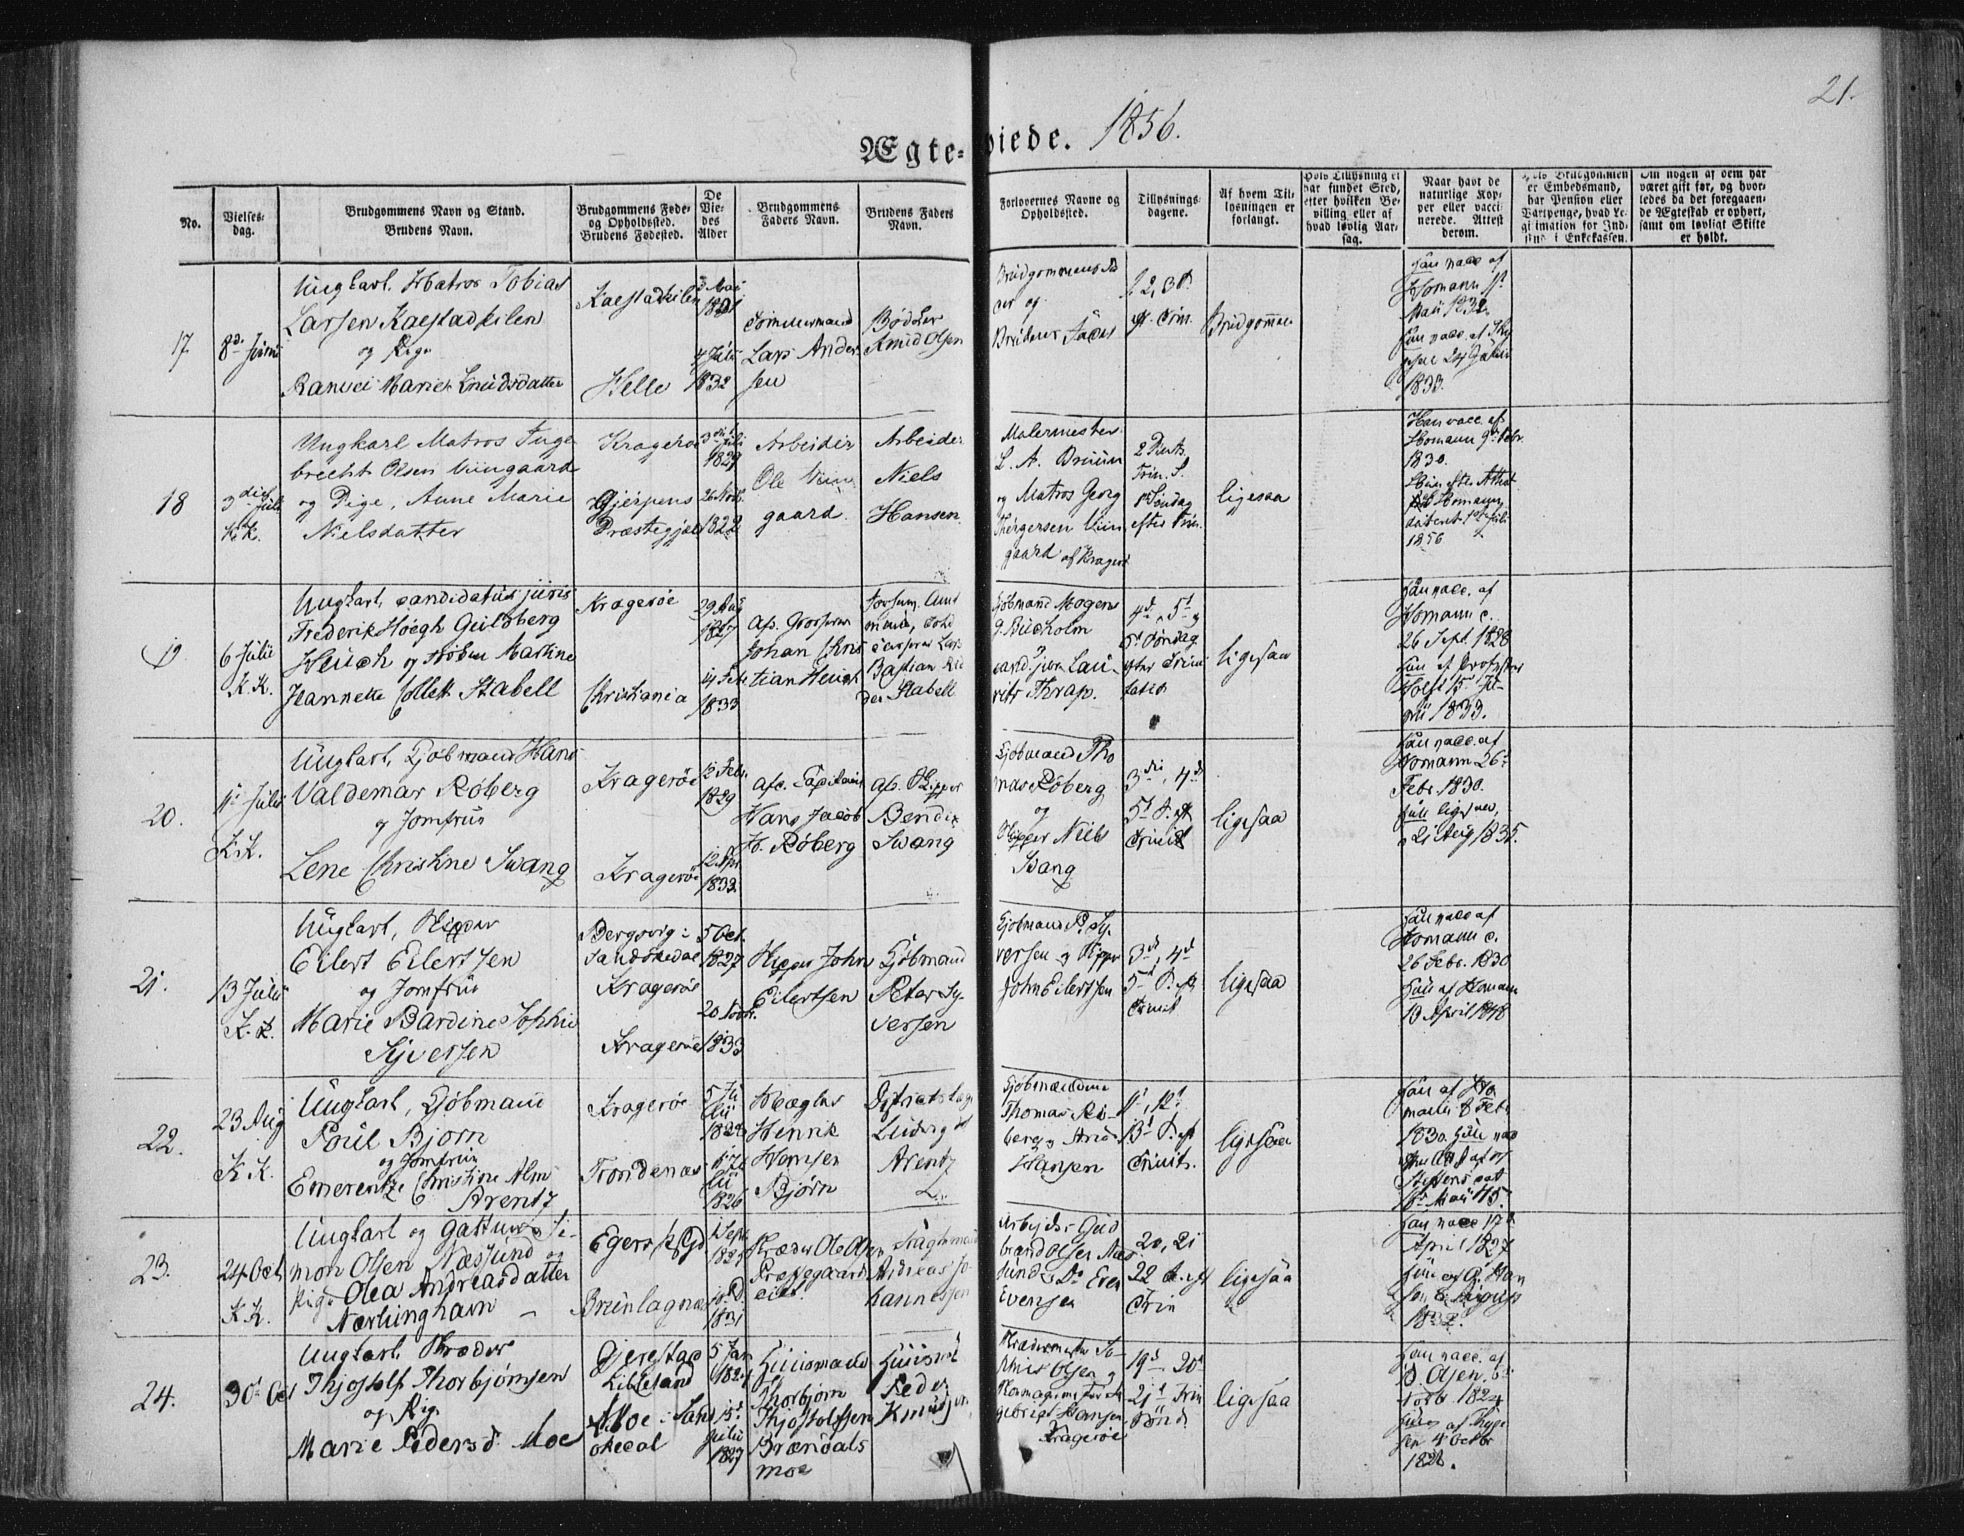 21.
Ægte-viede. 1856.
No.
Vielses-
dag.
Brudgommens Navn og Stand.
Brudens Navn.
Brudgommens Føde-
og Opholdssted.
Brudens Fødested.
De
Vie-
des
Alder
Brudgommens
Faders Navn.
Brudens Faders
Navn.
Forlovernes Navne og
Opholdssted.
Tillysnings-
dagene.
Af hvem Til-
lysningen er
forlangt.
Hvis Tillysning ei
har fundet Sted,
efter hvilken Be-
villing eller af
hvad lovlig Aar-
sag.
Naar havt de
naturlige Kop-
per eller vacci-
nerede. Attest
derom.
Hvis Brudgommen
er Embedsmand,
har Pension eller
Vartpenge, hvad Le-
gitimation for Ind-
skud i Enkekassen.
Om nogen af dem har
været gift før, og hvor-
ledes da det foregaaen-
de Ægteskab er ophørt,
samt om lovligt Skifte
er holdt.
17.
8de Juni
Ungkarl. Matros Tobias
Larsen Kaestadkilen
og Pige
Maries Knudsdatter
Kaestadkilen
Helle
1831
1832
Tømmermand
Lars Ander
sen
Bødker
Knud Olsen
Brudgommens Fa
der og
Brudens Fader
1. 2, 3d
ef. Trin.
Brudgommen
Han vacc. af
Homann
Mai 1832
24
1833.
18
3die Juli
K.K.
Ungkarl Matros Inge
brecht Olsen Viingaard
og Pige, Anne Marie
Nielsdatter
Kragerøe
Gjerpens
Præstegjæld
3die Juli
1829
26 Novb.
1822
Arbeider
Ole Viin
gaard.
Arbeider
Niels
Hansen.
Malermester
L. A. Bruun
og Matros Georg
Thergersen Viin
gaard af Kragerø
Trin. S.
Søndag
efter Trin.
ligesaa
Han vacc. af
Homann 9de Febr.
1830.
Hun efter Attest
Homann
dateret 1ste Juli
1856
19
6 Julii
K.K.
Ungkarl, candidatus juris
Frederik Høegh Guldberg
Heuch og Frøken Martine
Jeannette Collett Stabell
Kragerøe
Christiania
29 Aug
1827
14 Feb.
1833
af. Grosserer
Johan Chris
tian Heuch
Bastian
Stabell
Kjøbmand Mogens
Bucholm
Lau-
rits Thrap.
4d, 5d og
Søndag
efter Trini
tatis
ligesaa
Han vacc. af
Homann c.
26 Sept. 1828
Hun af Professor
Holst 15
1833.
20.
11te Julii
K.K.
Ungkarl, Kjøbmand Hans
Valdemar Røberg
og Jomfru
Lene Christine Svang
Kragerøe
Kragerøe
12 Febr.
1829
12 Apr.
1832
afd. Capitain
Hans Jacob
H. Røberg
af. Skipper
Bendix
Svang
Kjøbmand Tho
mas Røberg
og
Skipper Niels
Svang
3die, 4de
5d S. ef
Trinit
ligesaa
Han vacc. af
Homann 26
Febr. 1830.
Hun ligesaa,
21 Aug 1835.
21.
13 Julii
K.K.
Ungkarl, Skipper
Eilert Eilertsen
og Jomfru
Marie Bardine Sophie
Syversen
Bergsvig i
Sandøkedal
Kragerøe
Kragerøe
5 Oct.
1827
20 Novbr.
1833
Skipper John
Eilertsen
Kjøbmand
Peter Sy-
versen
Kjøbmand P. Sy-
versen og Skipper
John Eilertsen
3d, 4d
5d S. ef
Trinit
ligesaa
Han vacc af
Homann c.
26 Febr. 1830
Hun af Homann
19 April 1848
22.
23 Aug
K.K.
Ungkarl, Kjøbmand
Poul Bjorn
og Jomfru
Emerentze Christine Alm
Arentz
Kragerøe
Trondenæs
5 Ju
lii
1829
17 Ju
lii
1826
Mægler
Henrik
Hansen
Bjørn
Distriktslæge
Ludvig
Arentz
Kjøbmændene
Thomas Rø-
berg og
Hansen
11d, 12d
13d S. ef
Trinit.
ligesaa
Han af Ho
mann 8 Febr
1830. Hun
Steffens
18de Mai 45.
23.
24 Oct
K.K.
Ungkarl og Gartner Si-
mon Olsen Næssund og
Pige Olea Andreasdatter
Nærlinghavn
Egers
Brunlagnæs
1 Sept
1827
1831
Skræder Ole Olsen
Præstegaards
eiet
Andreas Jo
hannessen
Arbejdsm. Gud
brand Olsen Næs
sund og Do Even
Evensen
20, 21
22 S. ef
Trin
ligesaa
Han vacc 17d
April 1827
Hun af G. Han
sen
1832.
24.
30te Oct
Ungkarl, Skræder
Thjostolf Thorbjørnsen
og Pige
Marie Pedersd. Moe
Gjerestad
Lillesand
Moe i Sand
økedal
5 Jan
182
15d
Julii
1827
Huusmand
Thorbjørn
Thjostolfsen
Brændals
moe
Huusm
Peder
Knudsen
Skrædermester Jo
hnis Olsen og
gebrigt Hansen
Kragerøe
19d, 20d
21d Trin
Sønd.
ligesaa
Han vacc. af
O. Olsen, 5
Novbr. 1824
Hun af Thyge
sen 4 Octbr
1828.